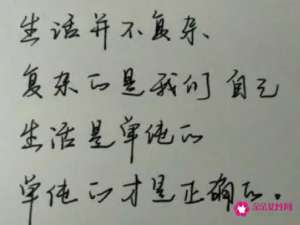 生活并不复杂
复杂的是我们自己
生活是单纯的
单纯的才是正确的。